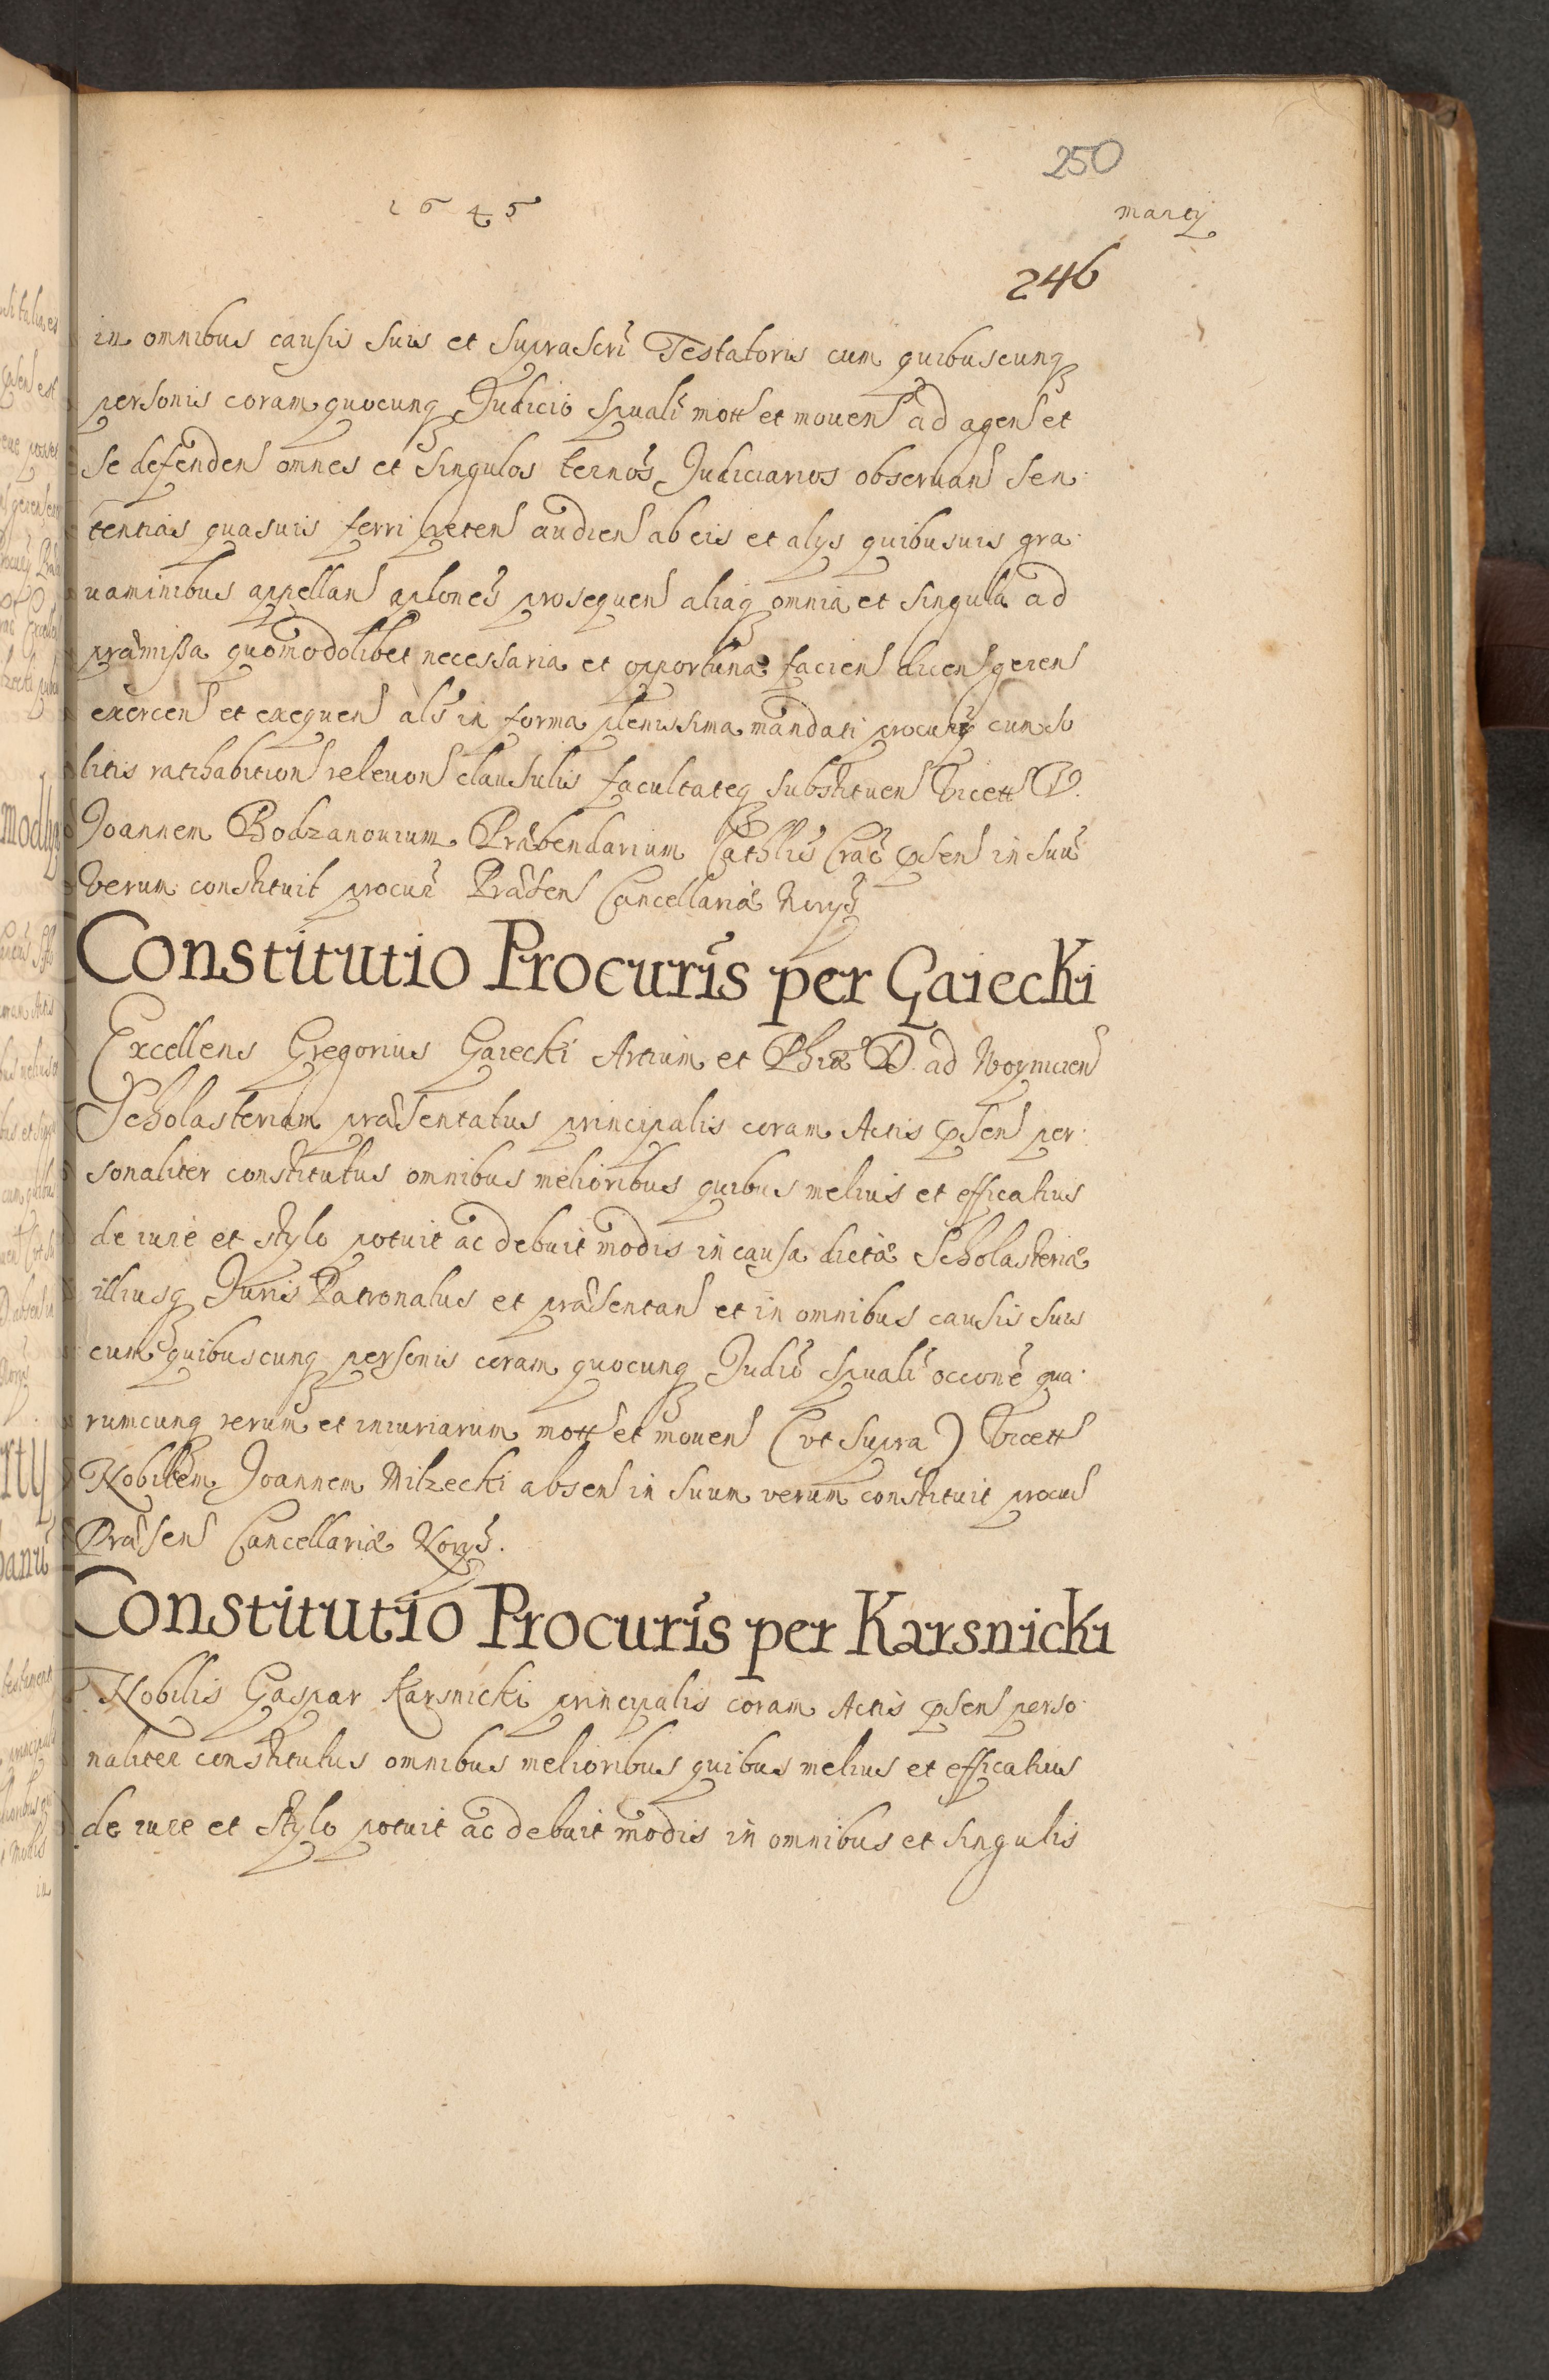 250
1645
martij
246
in omnibus causis suis et suprascri Testatoris cum quibuscunq
personis coram quocunq Judicio spuali mott et mouen ad agen et
se defenden omnes et singulos ternos Judiciarios obseruan sen
tentias quasuis ferri peten audien ab eis et alys quibusuis gra
uaminibus appellan aplones prosequen aliaq omnia et singula ad
præmissa quomodolibet necessaria et opportuna facien dicen geren
exercen et exequen als in forma plenissima mandati procurÿ cum so
litis ratihabition releuon clausulis facultateq substituen Vicett V.
Joannem Bodzanouium Præbendarium Cathlis Crac psen in suu
verum constituit procur Præsen Cancellariæ Norys
Constitutio Procuris per Gaiecki
Excellens Gregorius Gaiecki Artium et Phiæ D. ad Woynicien
Scholasteriam præsentatus principalis coram Actis psen per
sonaliter constitutus omnibus melioribus quibus melius et efficatius
de iure et stylo potuit ac debuit modis in causa dictæ Scholasteriæ
illiusq Juris Patronatus et præsentan et in omnibus causis suis
cum quibuscunq personis coram quocunq Judio spuali occone qua
rumcunq rerum et iniuriarum mott et mouen (vt supra) Vicett
Nobilem Joannem Milzecki absen in suum verum constituit procur
Præsen Cancellariæ Norys.
Constitutio Procuris per Karsnicki
Nobilis Gaspar Karsnicki principalis coram Actis psen perso
naliter constitutus omnibus melioribus quibus melius et efficatius
de iure et stylo potuit ac debuit modis in omnibus et singulis